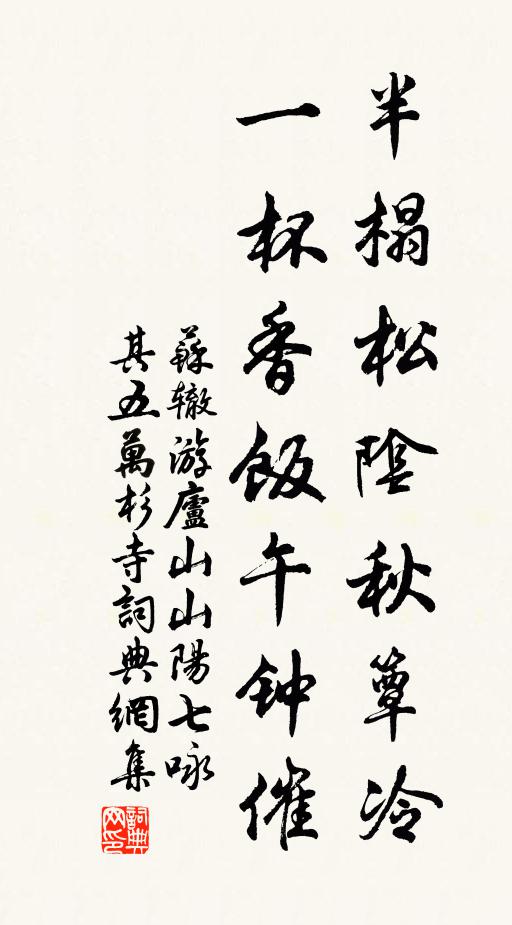 半榻松陰秋簟冷
一杯香飯午钟催
蘇辙游廬山山陽七咏
其五萬杉寺詞典網集
詞典网印